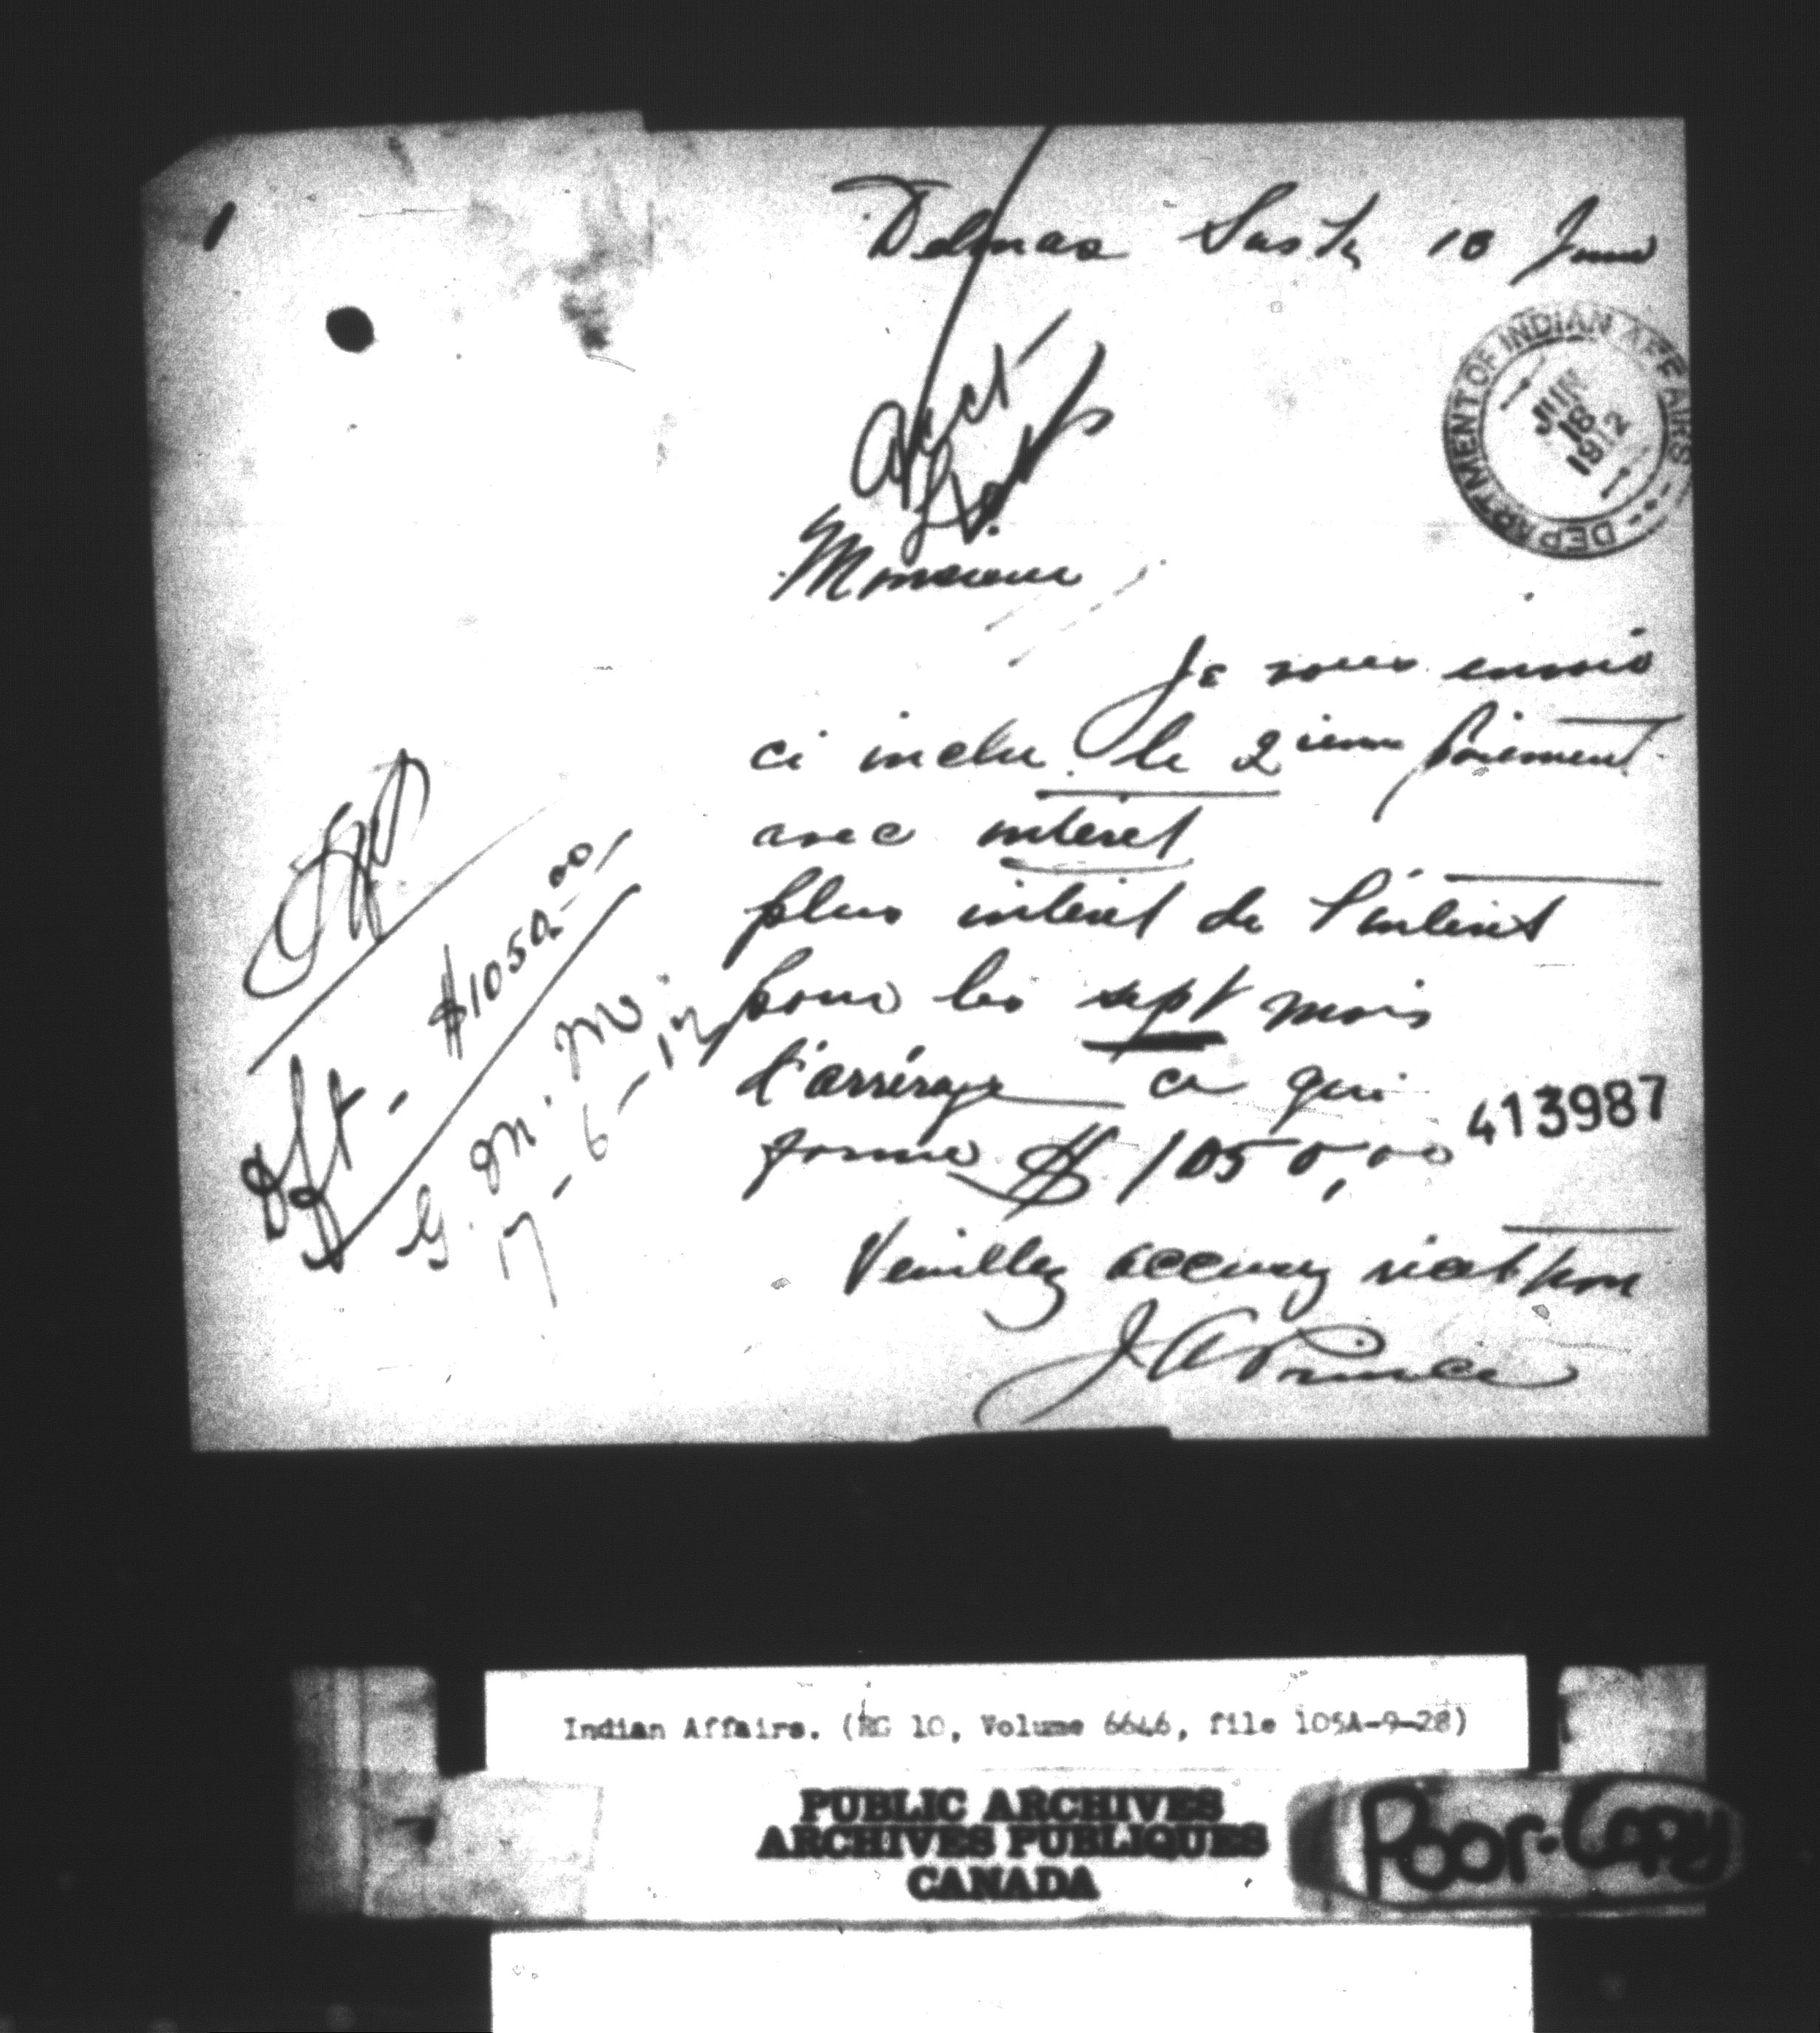 Delmas Sask 10 June
DEPARTMENT OF INDIAN AFFAIRS
JUN
18
1912
Acct
Monsieur
Je vous envoie
ci inclu le 2ieme paiement
avec intéret
plus intéret de l'intéret
pour les sept mois
d'arrérage ce qui
forme $ 1050,00
413987
Veuillez accusez reception
J A Prince
Dft. $1050.00
G. M. M.
17-6-12
Indian Affairs. (RG 10, Volume 6646, file 105A-9-28)
PUBLIC ARCHIVES
ARCHIVES PUBLIQUES
CANADA
Poor-Copy